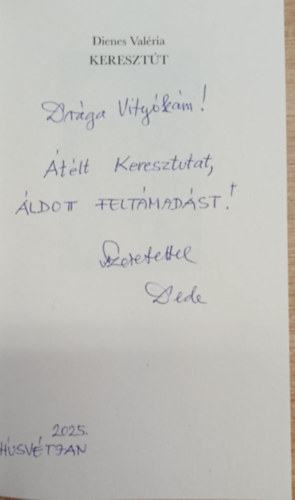 Dienes Valéria
KERESZTÚT
Drága Vityókám!
Átélt Keresztutat,
ÁLDOTT FELTÁMADÁST!†
Szeretettel
Dede
2025.
HÚSVÉTJÁN